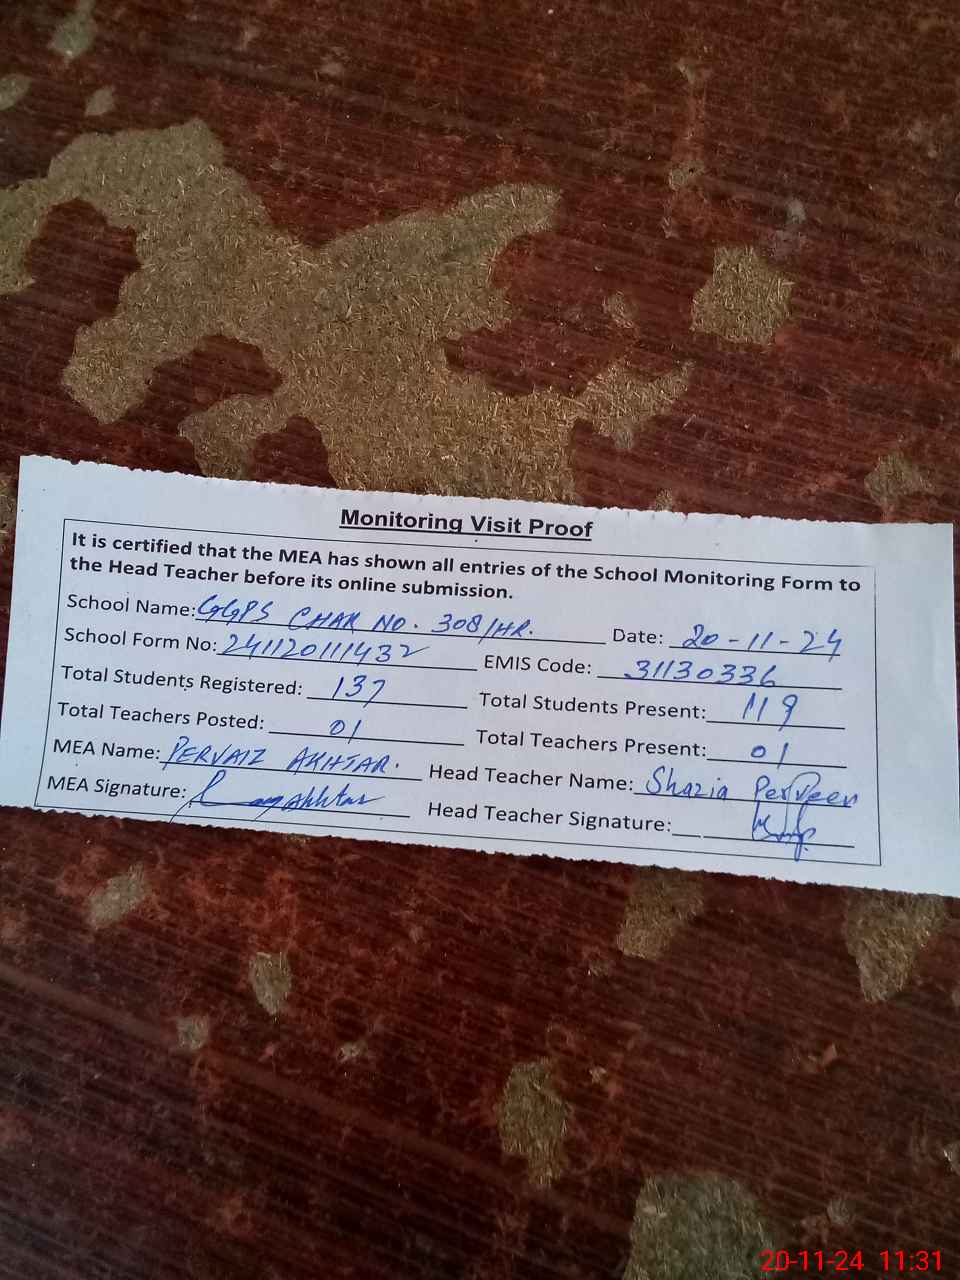 Monitoring Visit Proof
It is certified that the MEA has shown all entries of the School Monitoring Form to
the Head Teacher before its online submission.
School Name: GGPS CHAK NO. 308/HR. Date: 20-11-24
School Form No: 241120111432 EMIS Code: 31130336
Total Students Registered: 137 Total Students Present: 119
Total Teachers Posted: 01 Total Teachers Present: 01
MEA Name: PERVAIZ AKHTAR. Head Teacher Name: Shazia Perveen
MEA Signature: Head Teacher Signature:
20-11-24 11:31